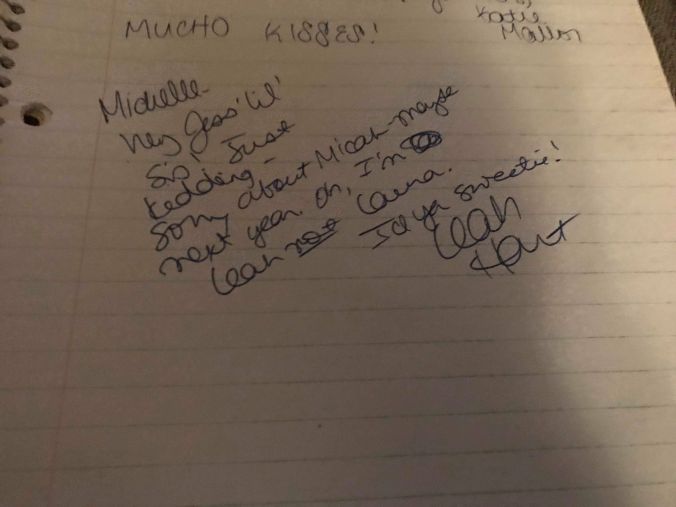 Katie
MUCHO KISSES! Mallon
Michelle-
Hey Jess' lil'
sis! Just
kidding-
Sorry about Micah-maybe
next year. Oh, I'm
Leah not Laura.
ya sweetie!
Leah
Hart